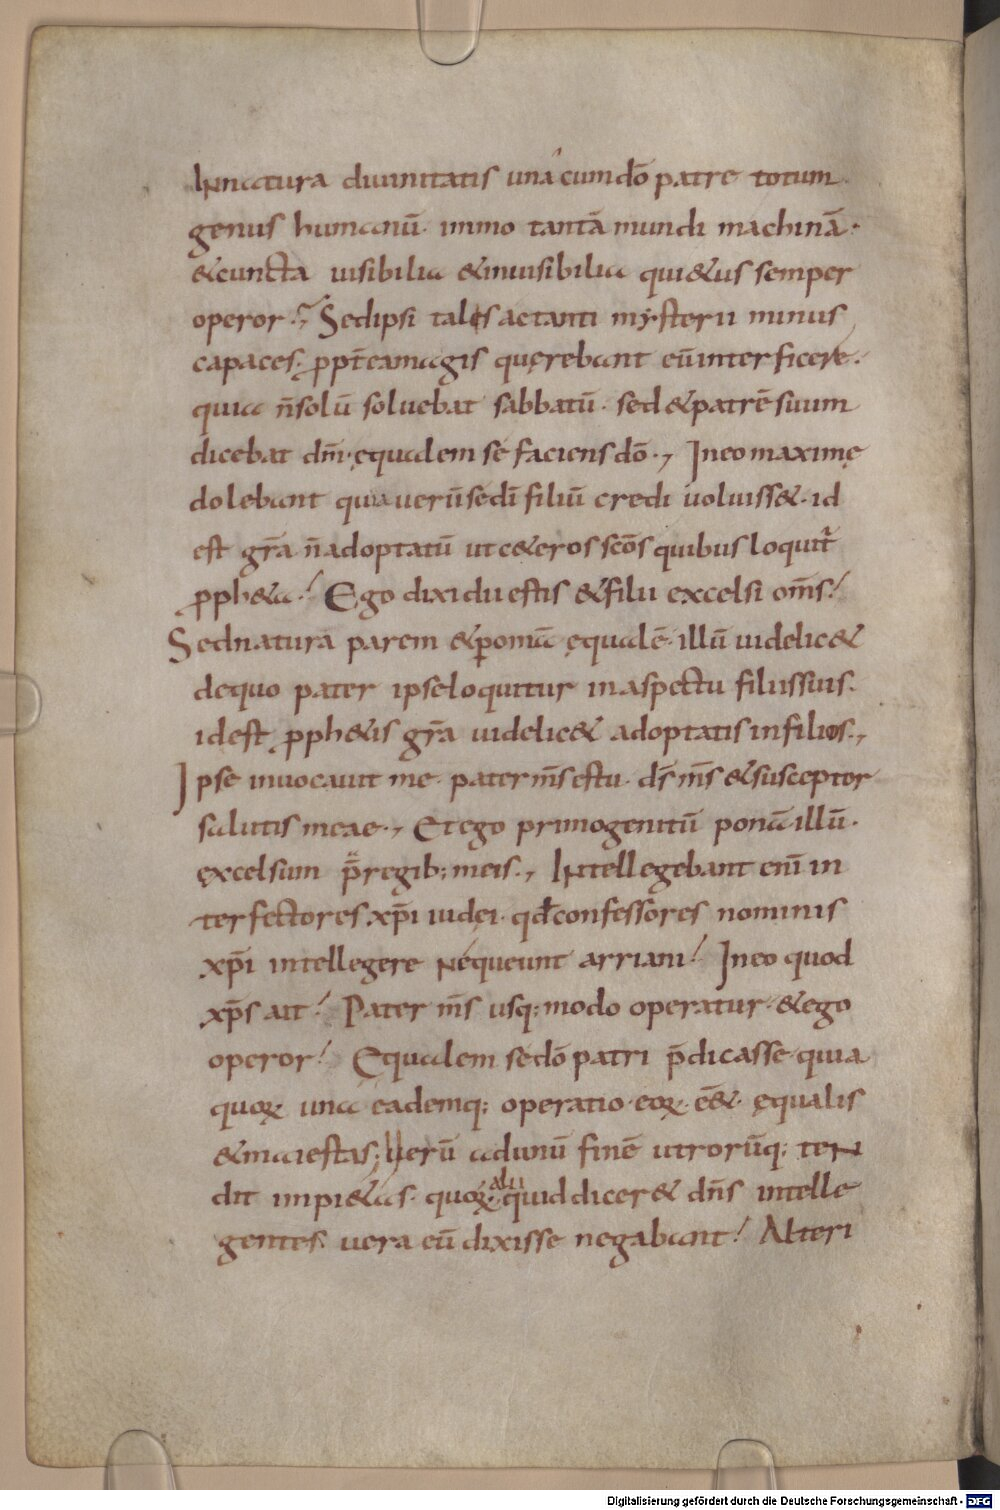 In natura diuinitatis una cum dō patre totum
genus humanū· immo tantā mundi machinā·
&cuncta uisibilia &inuisibilia qui&us semper
operor·, Sed ipsi tales ac tanti mysterii minus
capaces· ꝓpt̄ea magis quęrebant eū interficere·
quia n̄ solū soluebat sabbatū· sed & patrē suum
dicebat dm̄· ęqualem se faciens dō·, In eo maximę
dolebant quia uerū se dī filiū credi uoluiss&· id
est gr̄a n̄ adoptatū ut c&eros scōs quibus loquit̄
ꝓph&a·! Ego dixi dii estis & filii excelsi om̄s!
Sed natura parem & ꝑ oma ęqualē· illū uidelic&
de quo pater ipse loquitur in aspectu filiis suis·
id est ꝓph&is gr̄a uidelic& adoptatis in filios·,
Ipse inuocauit me· pater m̄s es tu· ds̄ m̄s & susceptor
salutis meae·, Et ego primogenitū ponā illū·
excelsum p̄ regib; meis·, Intellegebant enī in
terfectores xp̄i iudęi· qd̄ confessores nominis
xp̄i intellegere nequeunt arriani! In eo quod
xp̄s ait! Pater m̄s usq; modo operatur· & ego
operor! Ęqualem se dō patri p̄dicasse· quia
quoꝝ una eademq; operatio· eoꝝ· ē&· ęqualis
& maiestas; Uerū ad unū finē utrorūq; ten
dit impi&as· quoꝝ alii quid dicer& dn̄s intelle
gentes· uera eū dixisse negabant! Alteri
Digitalisierung gefördert durch die Deutsche Forschungsgemeinschaft - DFG